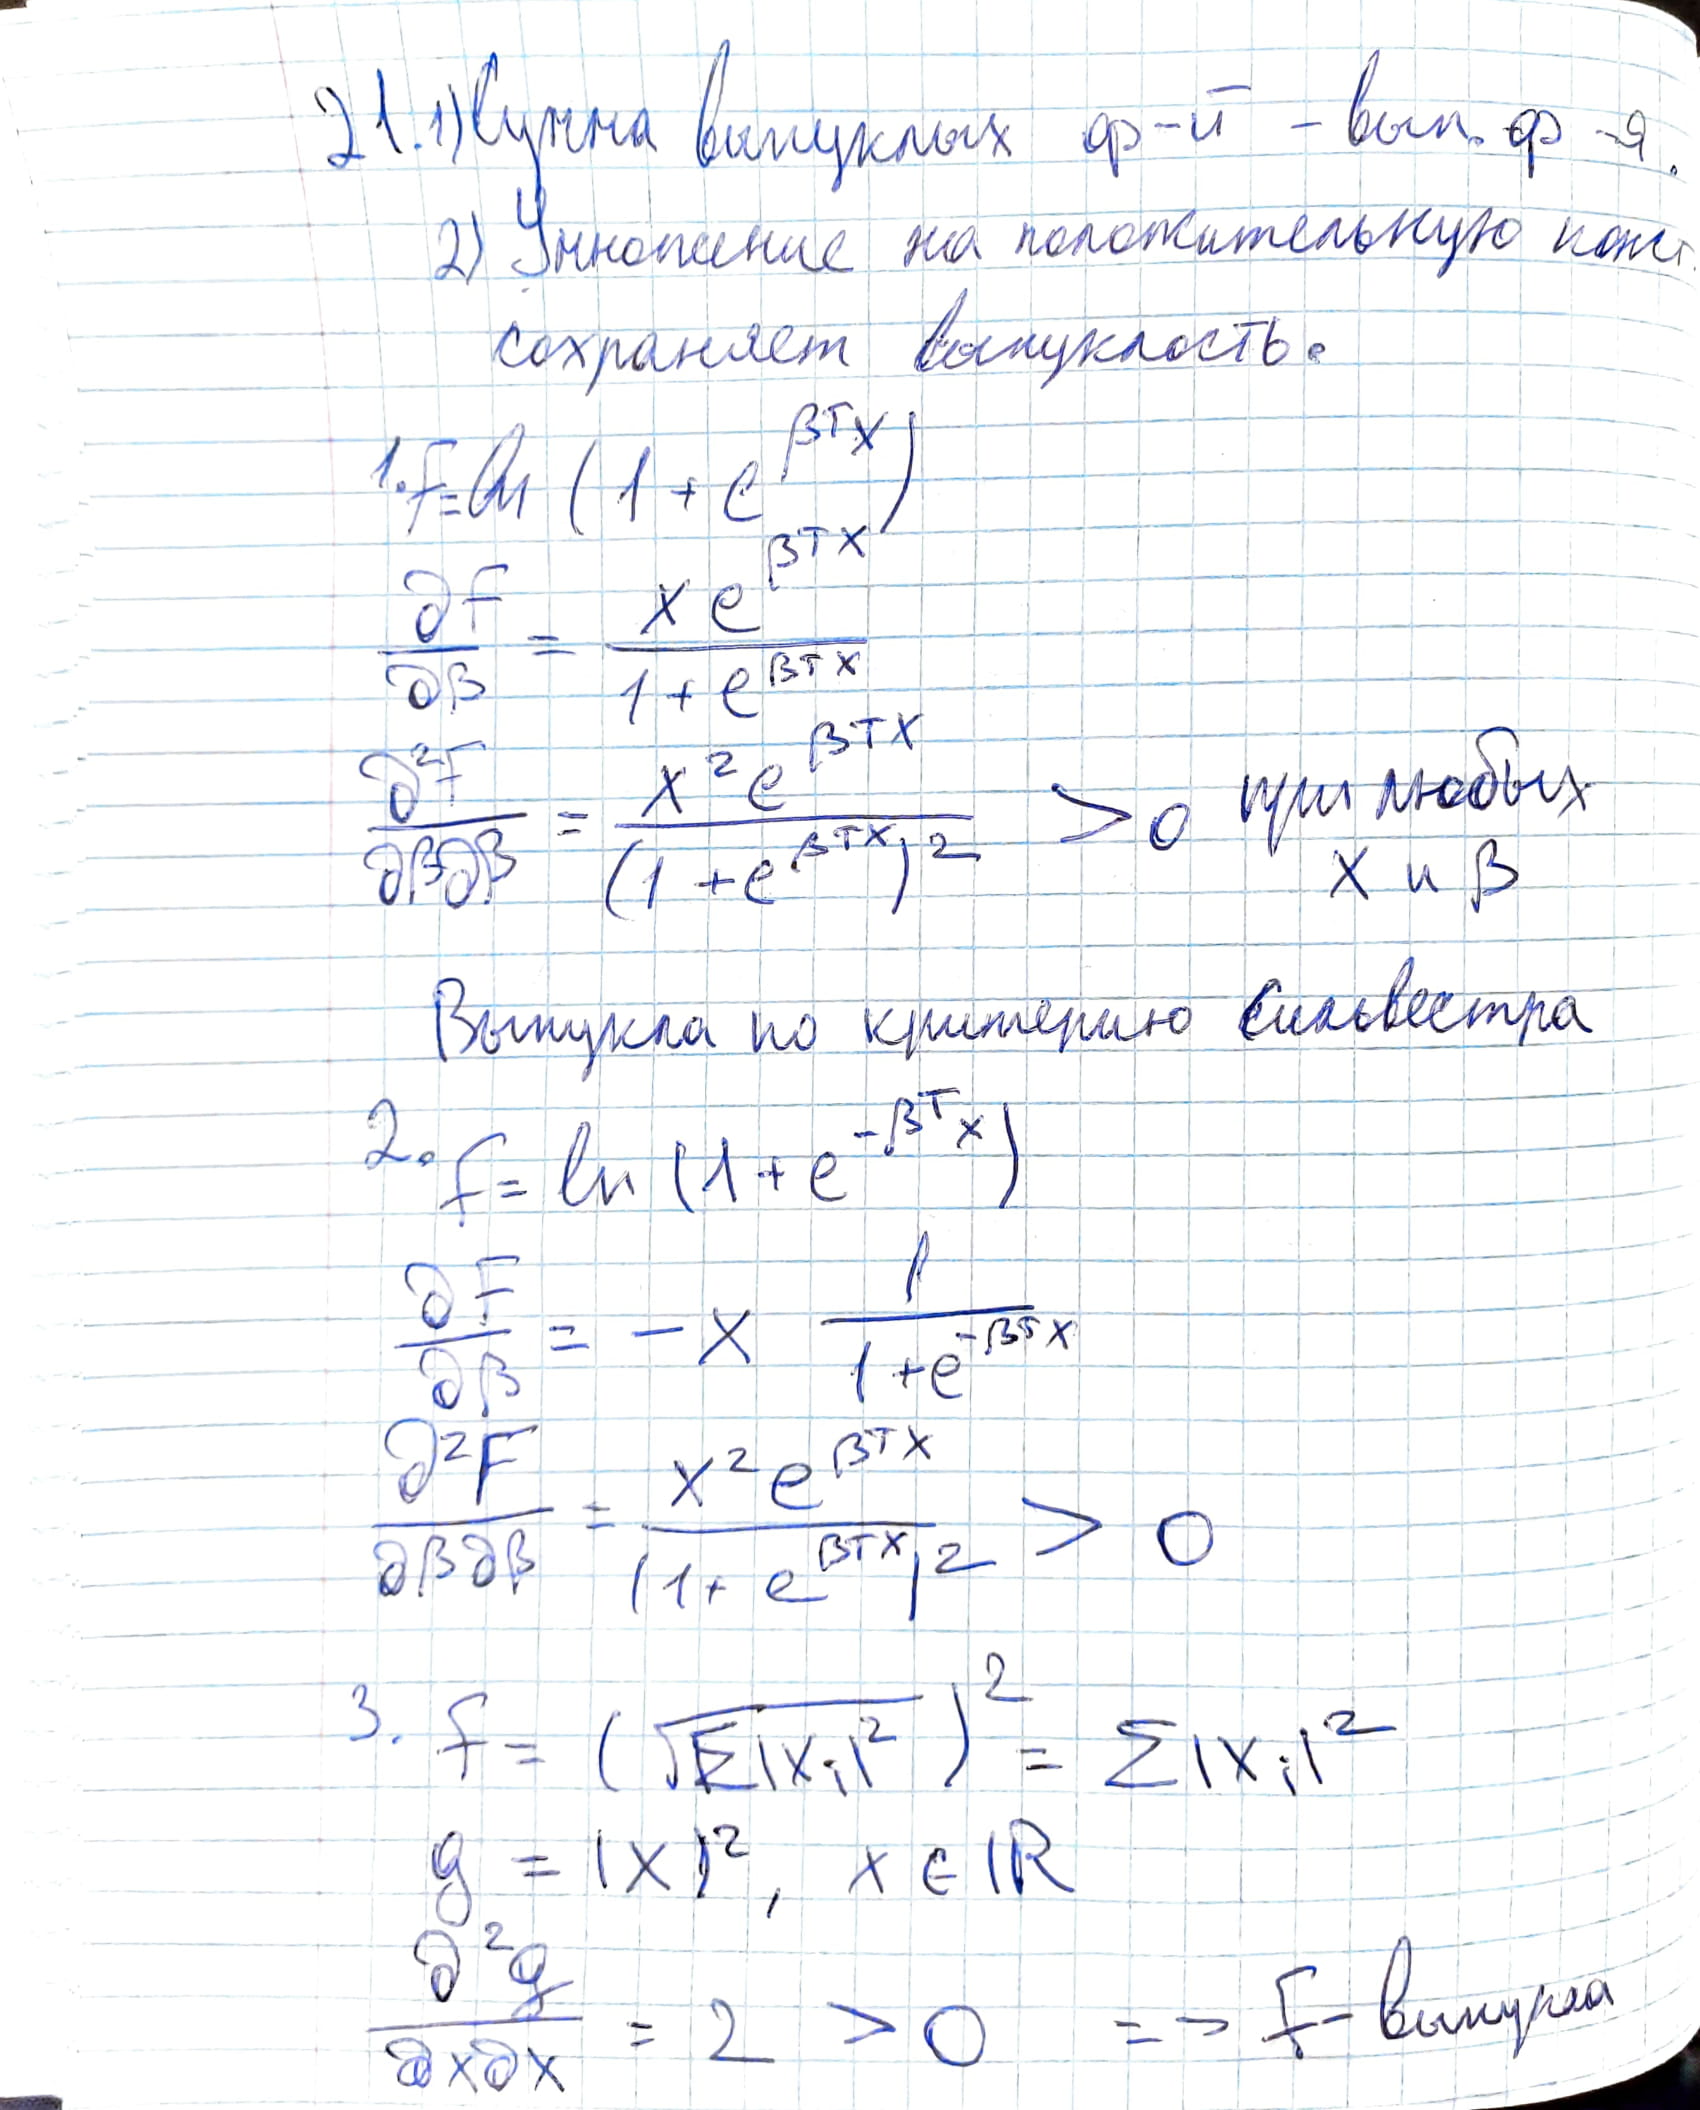 21. 1) Сумма выпуклых ф-й - вып. ф-я.
2) Умножение на положительную конст.
сохраняет выпуклость.
1. f = ln (1 + e^{βᵀx})
∂f/∂β = x e^{βᵀx} / (1 + e^{βᵀx})
∂²f/∂β∂β = x² e^{βᵀx} / (1 + e^{βᵀx})² > 0 при любых
x и β
Выпукла по критерию Сильвестра
2. f = ln (1 + e^{-βᵀx})
∂f/∂β = - x 1 / (1 + e^{-βᵀx})
∂²f/∂β∂β = x² e^{βᵀx} / (1 + e^{βᵀx})² > 0
3. f = (√Σ|xᵢ|²)² = Σ|xᵢ|²
g = |x|², x ∈ ℝ
∂²g/∂x∂x = 2 > 0 => f - выпукла